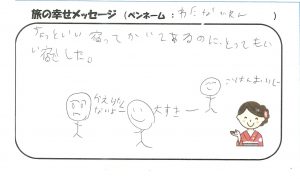 旅の幸せメッセージ (ペンネーム：わたなべれん)
ちょっといい宿ってかいてあるのに、とってもい
い宿でした。
かえりたく
ないよー
大すきー
ごはんおいしー